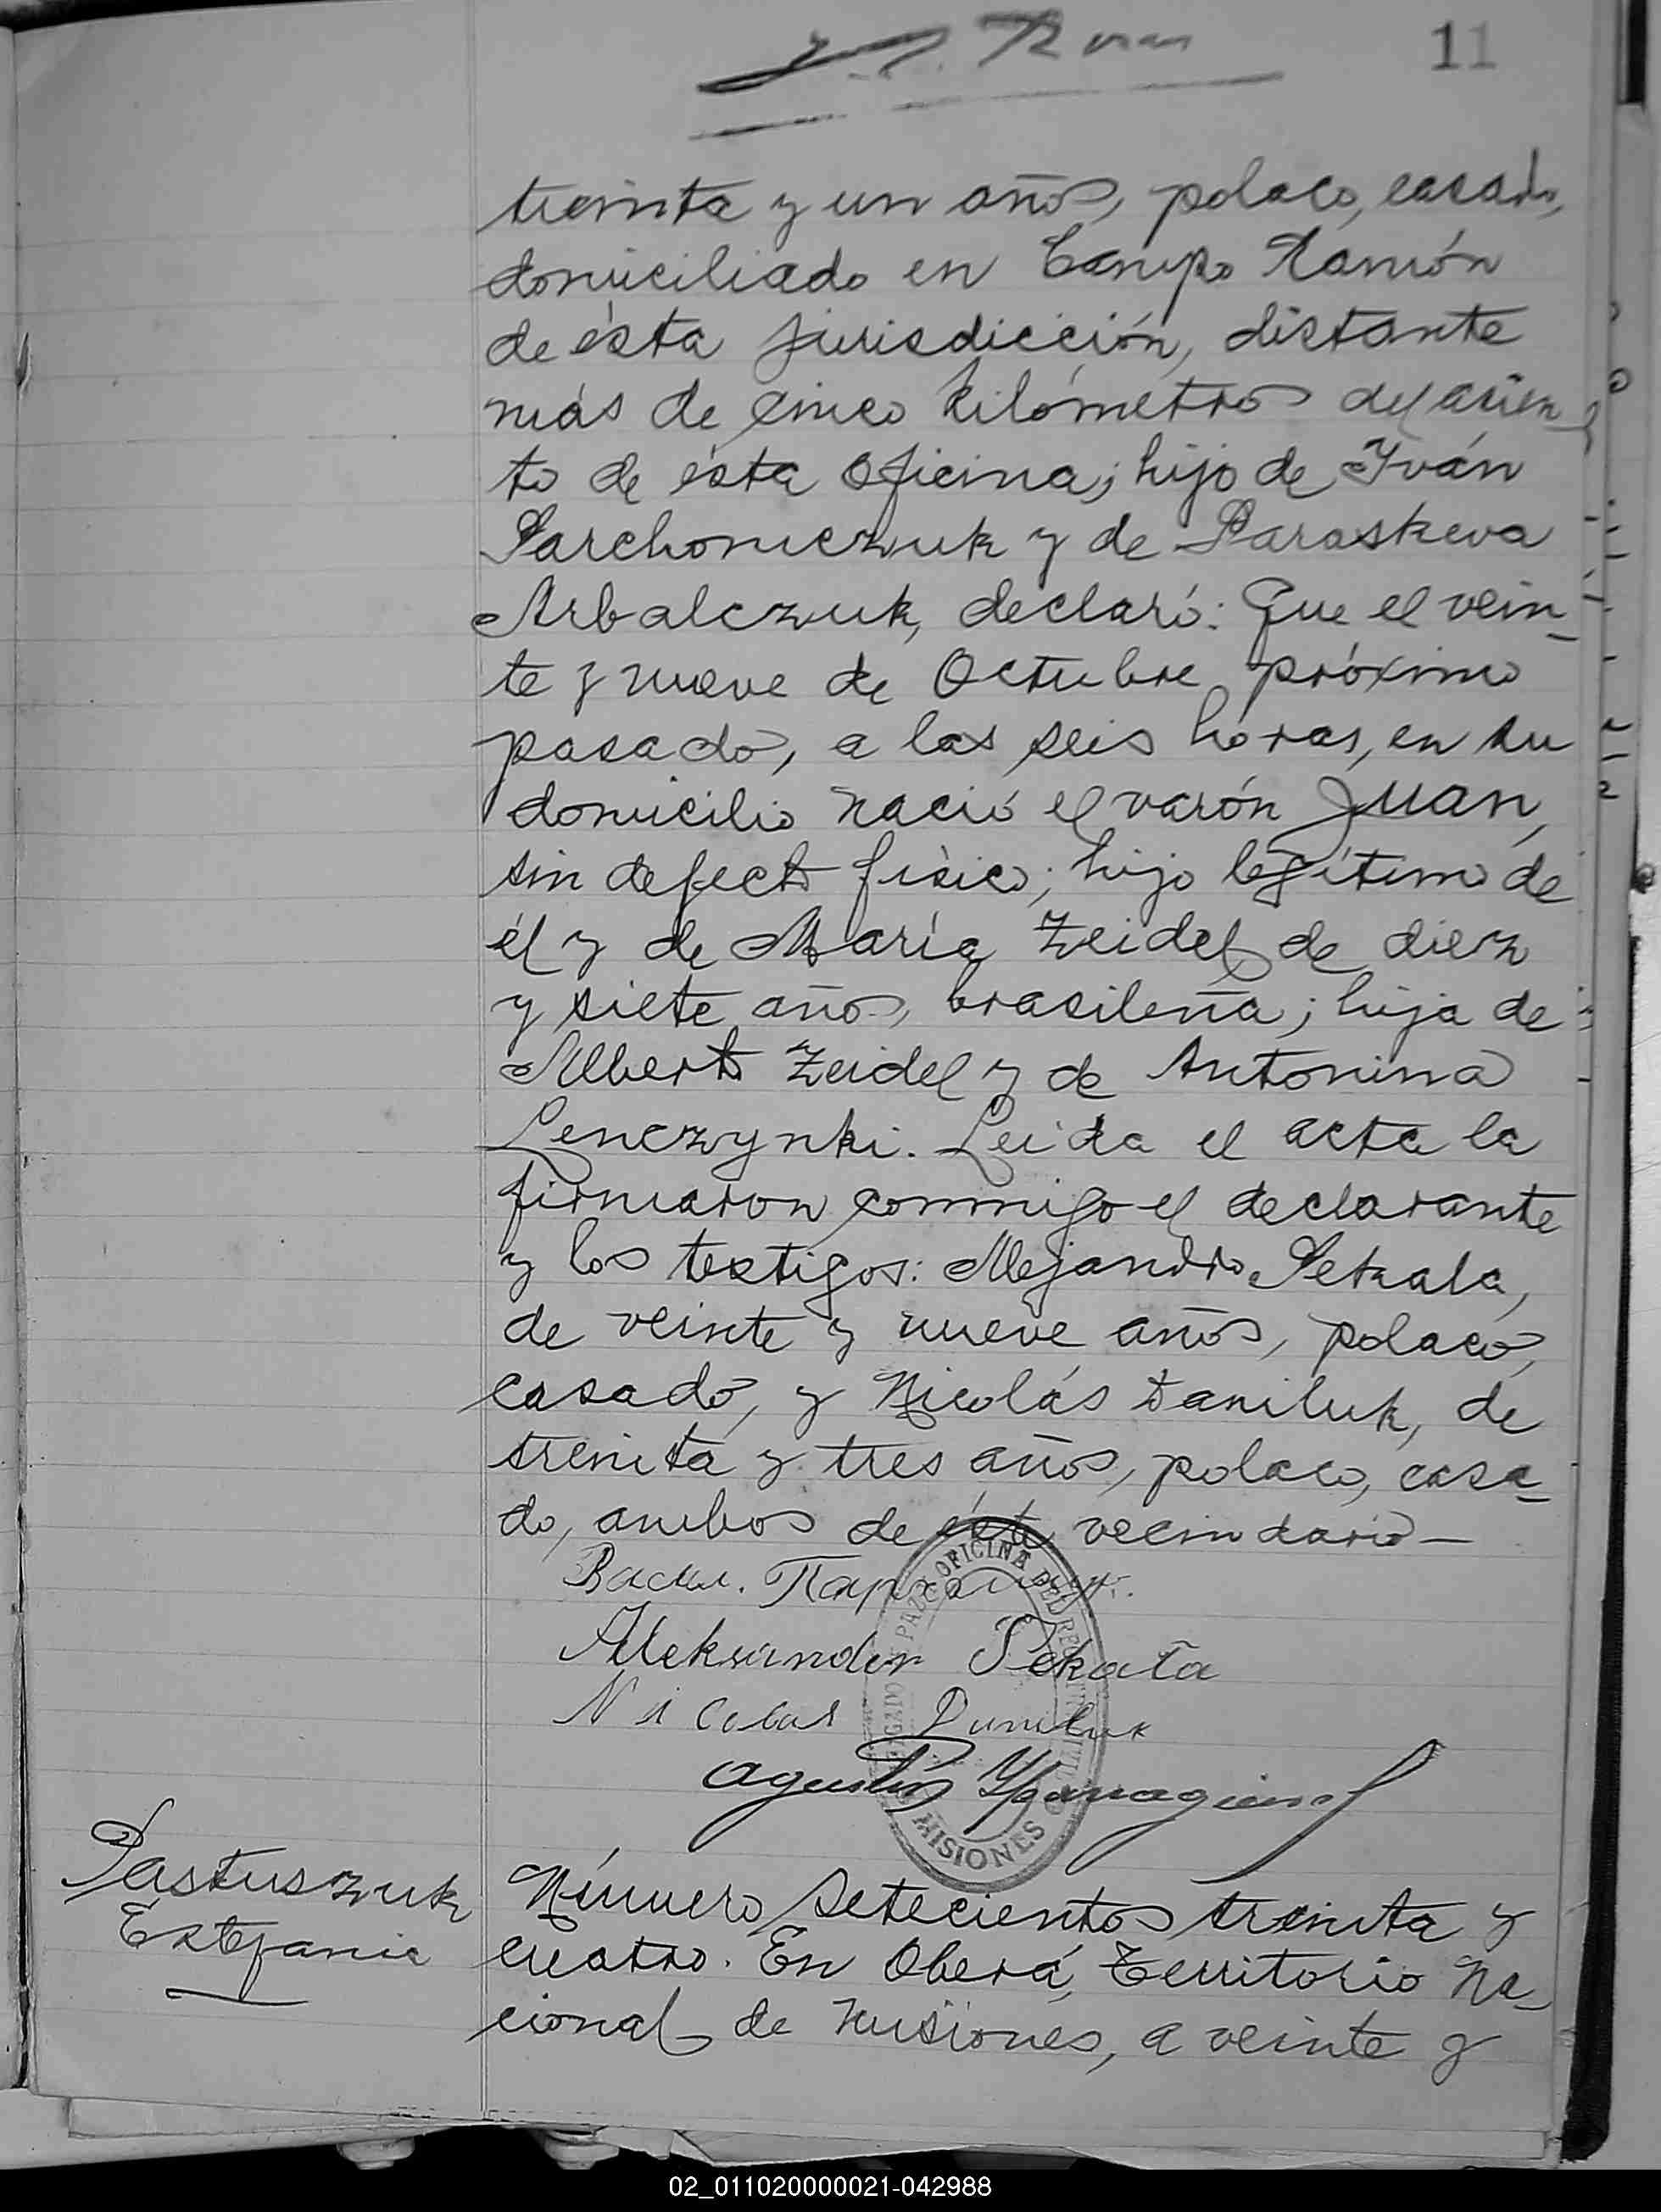 11
treinta y un años, polaco, casado,
domiciliado en Campo Ramón
de ésta jurisdicción, distante
más de cinco kilómetros del asien
to de ésta Oficina; hijo de Iván
Parchomczuk y de Paraskeva
Arbalczuk, declaró: Que el vein-
te y nueve de Octubre próximo
pasado, a las seis horas, en su
domicilio nació el varón Juan,
sin defecto físico; hijo legítimo de
él y de María Zeidel, de diez
y siete años, brasileña; hija de
Alberto Zeidel y de Antonina
Lenczynki. Leida el acta la
firmaron conmigo el declarante
y los testigos: Alejandro Pekala,
de veinte y nueve años, polaco,
casado, y Nicolás Daniluk, de
treinta y tres años, polaco, casa-
do, ambos de éste vecindario—
OFICINA DEL
MISIONES
Aleksander Pekała
Nicolas Daniluk
Agustín
Pastuszuk
Estefania
Número setecientos treinta y
cuatro. En Oberá, Territorio Na-
cional de Misiones, a veinte y
02_011020000021-042988